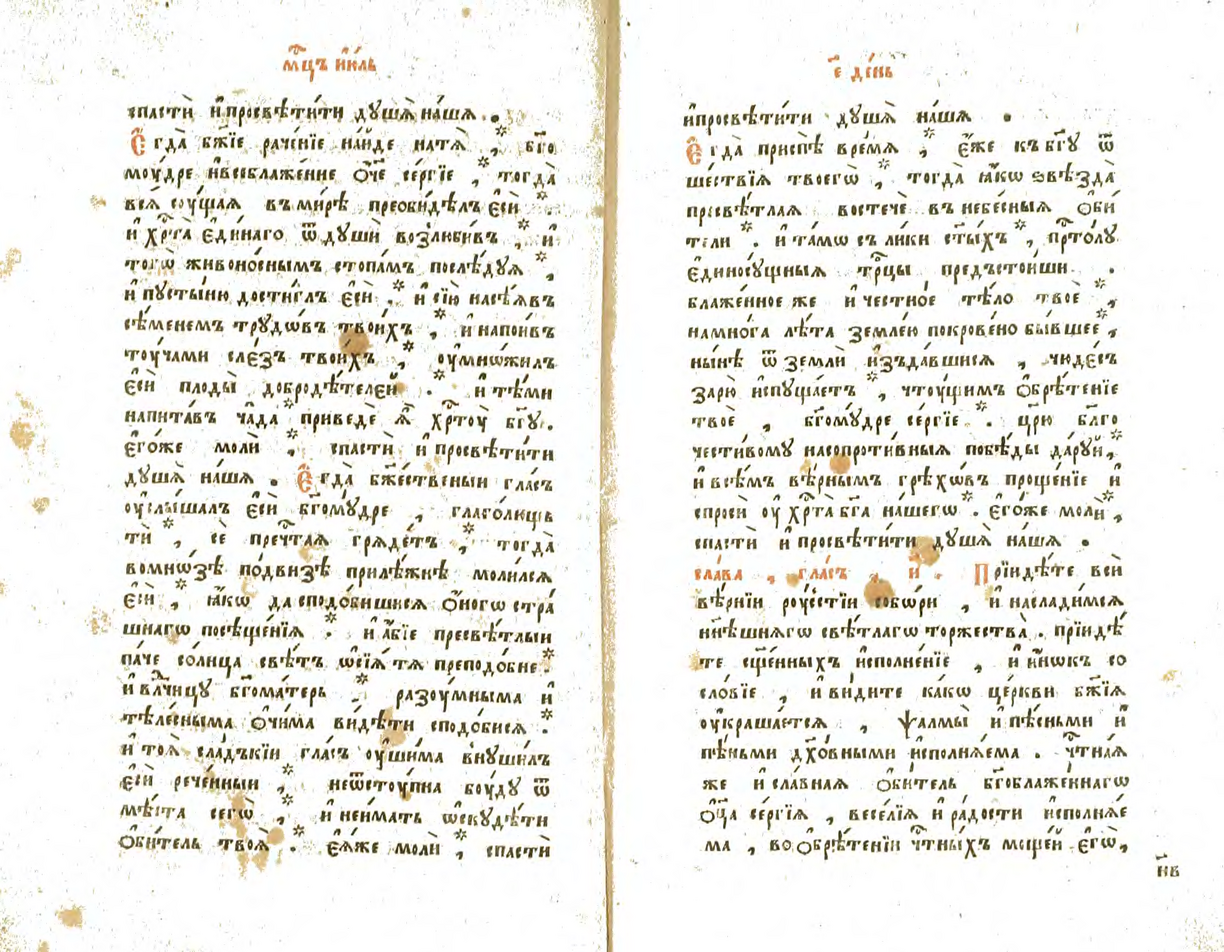 мц҃ъ и҆ю́ль
спастѝ и҆просвѣти́ти дꙋшѧ̀ на́шѧ .
Є҆гда̀ бж҃їе раче́нїе на́йде натѧ̀ ,* бг҃о
моу́дре и҆всеблаже́нне ѻ҆́ч҃е се́ргїе ,* тогда̀
всѧ̀ сꙋ́щаѧ въми́рѣ преѻби́дѣлъ є҆сѝ *
и҆ хрⷭ҇та̀ є҆ди́наго ѿ дꙋшѝ возлюби́въ ,* и҆
тогѡ̀ живоно́снымъ стопа́мъ послѣ́дꙋѧ ,*
и҆ пꙋсты́ню дости́глъ є҆сѝ .* и҆ сїю̀ насѣ́ѧвъ
сѣ́менемъ трꙋдѡ́въ твои́хъ ,* и҆ напои́въ
тоу́чами сле́зъ твои́хъ ,* оу҆мно́жилъ
є҆сѝ плоды̀ добродѣ́телей .* и҆ тѣ́ми
напита́въ ча̑да * приведѐ ѧ҆̀ хрⷭ҇тоу̀ бг҃ꙋ .
є҆го́же молѝ ,* спастѝ и҆ просвѣти́ти
дꙋшѧ̀ на́шѧ . Є҆гда̀ бж҃е́ственыи гла́съ
оу҆слы́шалъ є҆сѝ бг҃омꙋ́дре , глаго́лющь
тѝ ,* сѐ преч҃таѧ грѧде́тъ ,* тогда̀
вомно́зѣ по́двизѣ прилѣ́жнѣ моли́лсѧ
є҆сѝ ,* ꙗ҆́кѡ да сподо́бишисѧ ѻ҆́ногѡ стра́
шнагѡ посѣще́нїѧ .* и҆ а҆́бїе пресвѣ́тлыи
па́че со́лнца свѣ́тъ ѡ҆сїѧ̀ тѧ преподо́бне *
и҆ влⷣчицꙋ бг҃ома́терь ,* разоу́мныма и҆
тѣле́сныма ѻ҆чи́ма ви́дѣти сподо́бисѧ .*
и҆ тоѧ̀ сла́дъкїи гла́съ оу҆ши́ма внꙋши́лъ
є҆сѝ рече́нныи ,* неѿстоу́пна боу́дꙋ ѿ
мѣ́ста сегѡ̀ ,* и҆ неи́мать ѡ҆скꙋдѣ́ти
ѻ҆би́тель твоѧ̀ .* є҆ѧ́же молѝ ,* спастѝ
є҃ де́нь
и҆просвѣти́ти дꙋшѧ̀ на́шѧ .
Є҆гда̀ приспѣ̀ вре́мѧ ,* є҆́же къ бг҃ꙋ ѿ
ше́ствїѧ твоегѡ̀ ,* тогда̀ ꙗ҆́кѡ ѕвѣзда̀
пресвѣ́тлаѧ востечѐ въ небе́сныѧ ѻ҆би́
тели *. и҆ та́мѡ съ ли́ки ст҃ы́хъ ,* прⷭ҇то́лꙋ
є҆диносꙋ́щныѧ трⷪ҇цы предъстои́ши .
блаже́нное же и҆ честно́е тѣ́ло твоѐ ,*
намно́га лѣ́та земле́ю покрове́но бы́вшее ,*
ны́нѣ ѿ землѝ и҆зъда́вшисѧ , чюде́съ
зарю̀ и҆спꙋща́етъ ,* чтоу́щимъ ѻ҆брѣ́тенїе
твоѐ , бг҃омꙋ́дре се́ргїе *. цр҃ю̀ бл҃го
чести́вомꙋ насопроти́вныѧ побѣ́ды да́рꙋй ,*
и҆ всѣ́мъ вѣ́рнымъ грѣхѡ́въ проще́нїе и҆
спросѝ оу҆ хрⷭ҇та̀ бг҃а на́шегѡ *. є҆го́же молѝ ,*
спастѝ и҆ просвѣти́ти дꙋшѧ̀ на́шѧ .
сла́ва , гла́съ , и҃ . Прїиде́те всѝ
вѣ́рнїи роу́сстїи собо́ри , и҆ наслади́мсѧ
нн҃ѣшнѧгѡ свѣ́тлагѡ торжества̀ . прїидѣ́
те сщ҃е́нныхъ и҆сполне́нїе , и҆ и҆́нѡкъ со
сло́вїе , и҆ ви́дите ка́кѡ це́ркви бж҃їѧ
оу҆краша́етсѧ , ѱалмы̀ и҆ пѣ́сньми и҆
пѣ́ньми дх҃о́вными и҆сполнѧ́ема . чⷭ҇тнаѧ
же и҆ сла́внаѧ ѻ҆би́тель бг҃облаже́ннагѡ
ѻ҆ц҃а̀ се́ргїѧ , весе́лїѧ и҆ ра́дости и҆сполнѧ́е
ма , во ѻ҆брѣ́тенїи чⷭ҇тны́хъ моще́й є҆гѡ̀ ,
н҃в